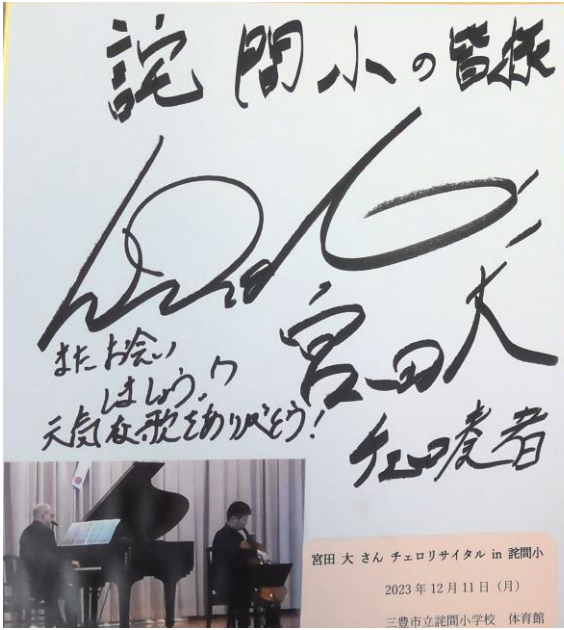 詫間小の皆様
宮田大
チェロ奏者
また お会い
しましょう。
元気な歌をありがとう!
宮田 大 さん チェロリサイタル in 詫間小
2023 年 12 月 11 日（月）
三豊市立詫間小学校 体育館